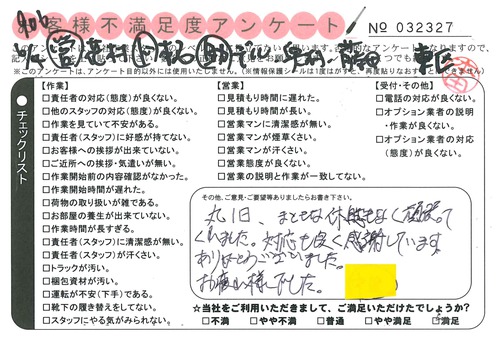 お客様不満足度アンケート
№ 032327
※このアンケートは、アンケート目的以外には使用いたしません。(※情報保護シールは1度はがすと、再度貼りなおすことはできません)
チェックリスト
【作業】
□責任者の対応(態度)が良くない。
□他のスタッフの対応(態度)が良くない。
□作業を見ていて不安がある。
□責任者(スタッフ)に好感が持てない。
□お客様への挨拶が出来ていない。
□ご近所への挨拶・気遣いが無い。
□作業開始前の内容確認がなかった。
□作業開始時間が遅れた。
□荷物の取り扱いが雑である。
□お部屋の養生が出来ていない。
□作業時間が長すぎる。
□責任者(スタッフ)に清潔感が無い。
□責任者(スタッフ)が汗くさい。
□トラックが汚い。
□梱包資材が汚い。
□運転が不安(下手)である。
□靴下の履き替えをしてない。
□スタッフにやる気がみられない。
【営業】
□見積もり時間に遅れた。
□見積もり時間が長い。
□営業マンに清潔感が無い。
□営業マンが煙草くさい。
□営業マンが汗くさい。
□営業態度が良くない。
□営業の説明と作業が一致してない。
【受付・その他】
□電話の対応が良くない。
□オプション業者の説明・作業が良くない。
□オプション業者の対応(態度)が良くない。
その他、ご意見・ご要望等ありましたらお書き下さい。
丸1日、まともな休憩もなく頑張って
くれました。対応も良く感謝しています
ありがとうございました。
お疲れ様でした。
☆当社をご利用いただきまして、ご満足いただけたでしょうか?
□不満 □やや不満 □普通 □やや満足 □満足